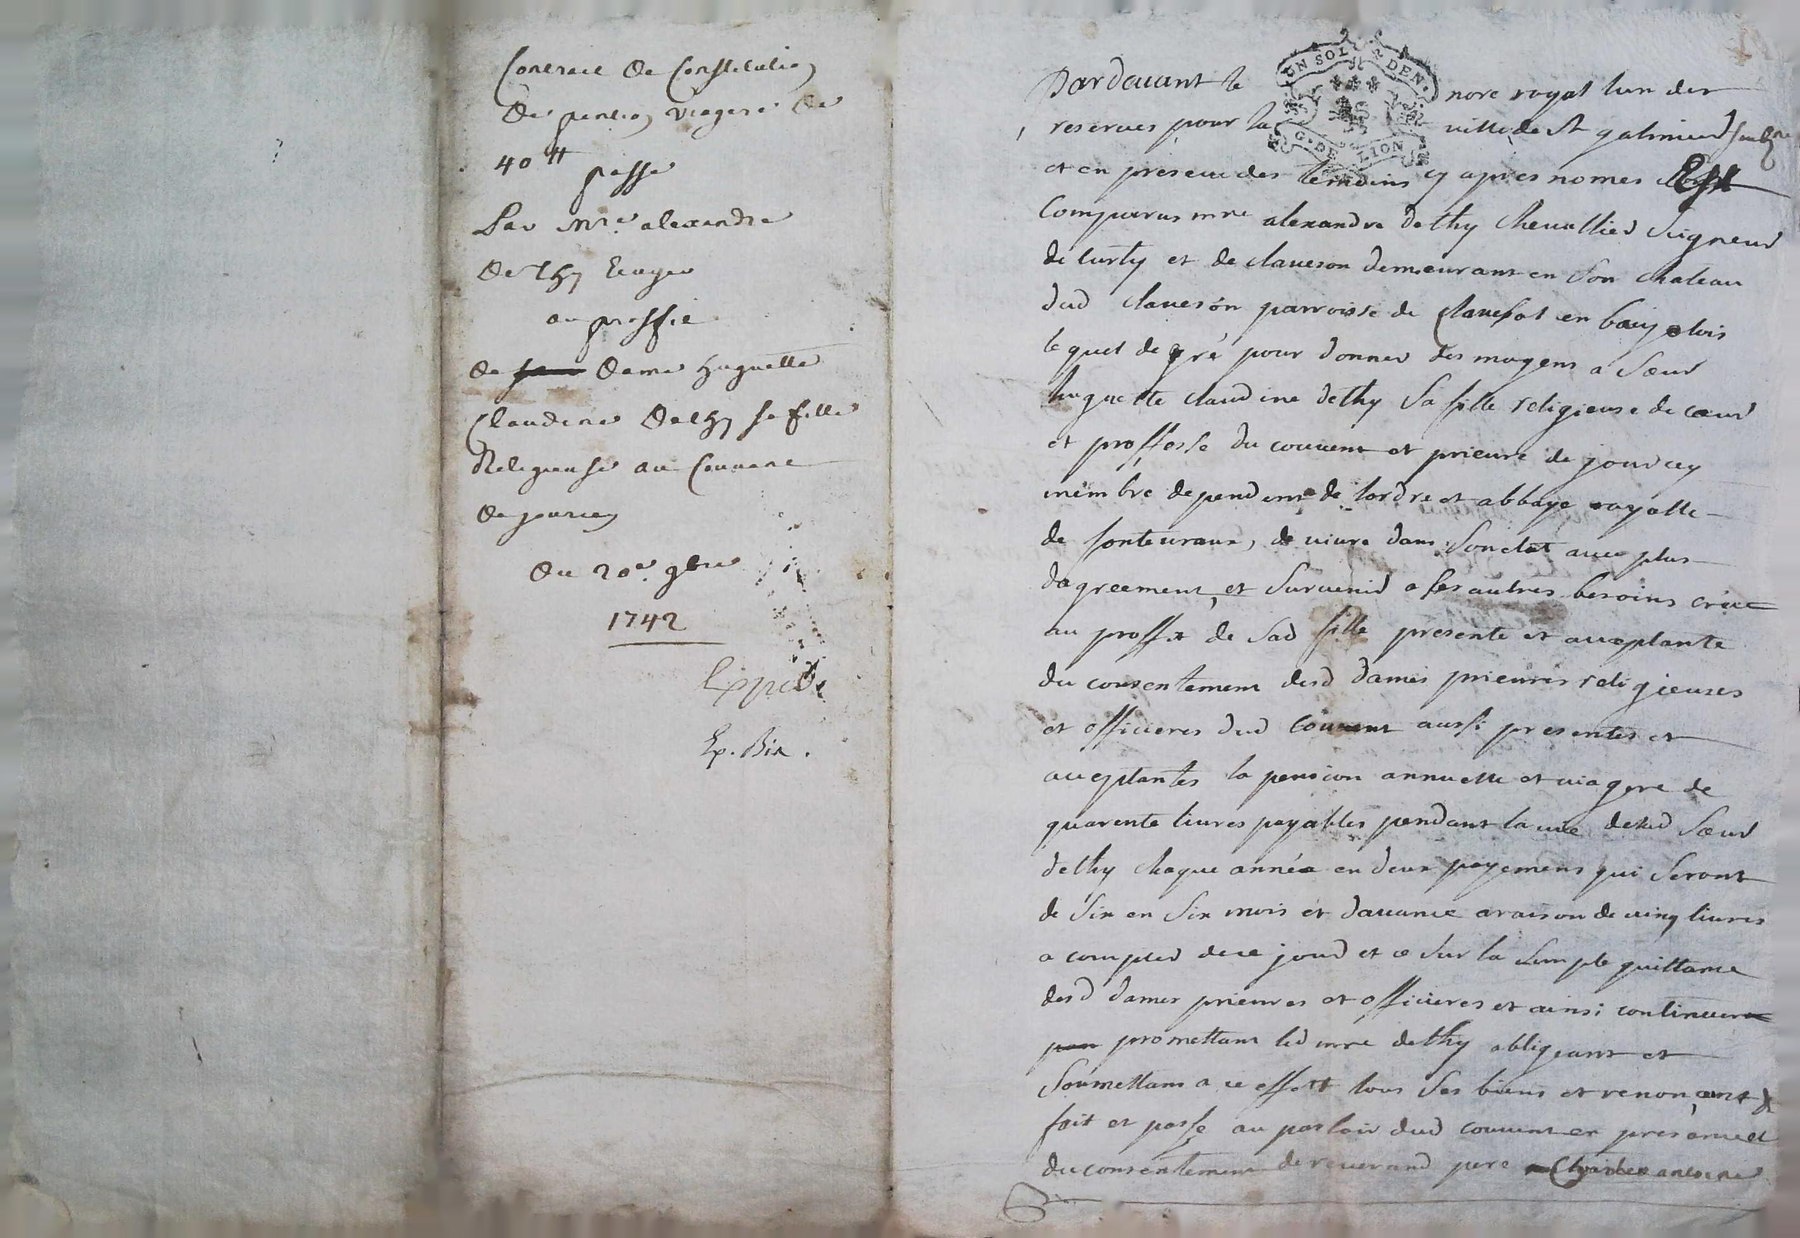 Contract de Constitution
de pention viagere de
40 ₶
passé
Par Mre. alexandre
de thy Ecuyer
au proffit
de dame huguette
Claudine dethy sa fille
Religieuse au Couvent
de jourcey
du 20e. 9bre
1742
Expédié
Ex. Bis.
UN SOL 2 DEN.
G. DE LION
Pardevant le nore royal lun des
reserves pour la ville de St galmier
et en presence des temoins cy apres nomes Est
Comparus mre alexandre dethy Chevallier Seigneur
de curty et de claveson demeurant en son chateau
dud claveson parroisse de en baujolois
lequel de gré pour donner des moyens a Sœur
huguette claudine dethy Sa fille religieuse de cœur
et proffesse du couvent et prieuré de jourcey
membre dependent de lordre et abbaye royalle
de fontevraux, de vivre dans Son etat avec plus
dagreement, et Survenir a ses autres besoins crée
au proffit de Sad fille presente et acceptante
du consentement desd dames prieures religieuses
et officieres dud Couvent aussi presentes et
acceptantes la pension annuelle et viagere de
quarente livres payables pendant la vie delad Sœur
dethy chaque année en deux payemens qui Seront
de Six en Six mois et davance araison de vingt livres
a compter de ce jour et ce Sur la Simple quittance
desd dames prieures et officieres et ainsi continuer
promettant led mre dethy obligeant et
Soumettant a ce effett tous Ses biens et renonçant &
fait et passé au parloir dud couvent en presence et
du consentement de reverand pere Charles antoine